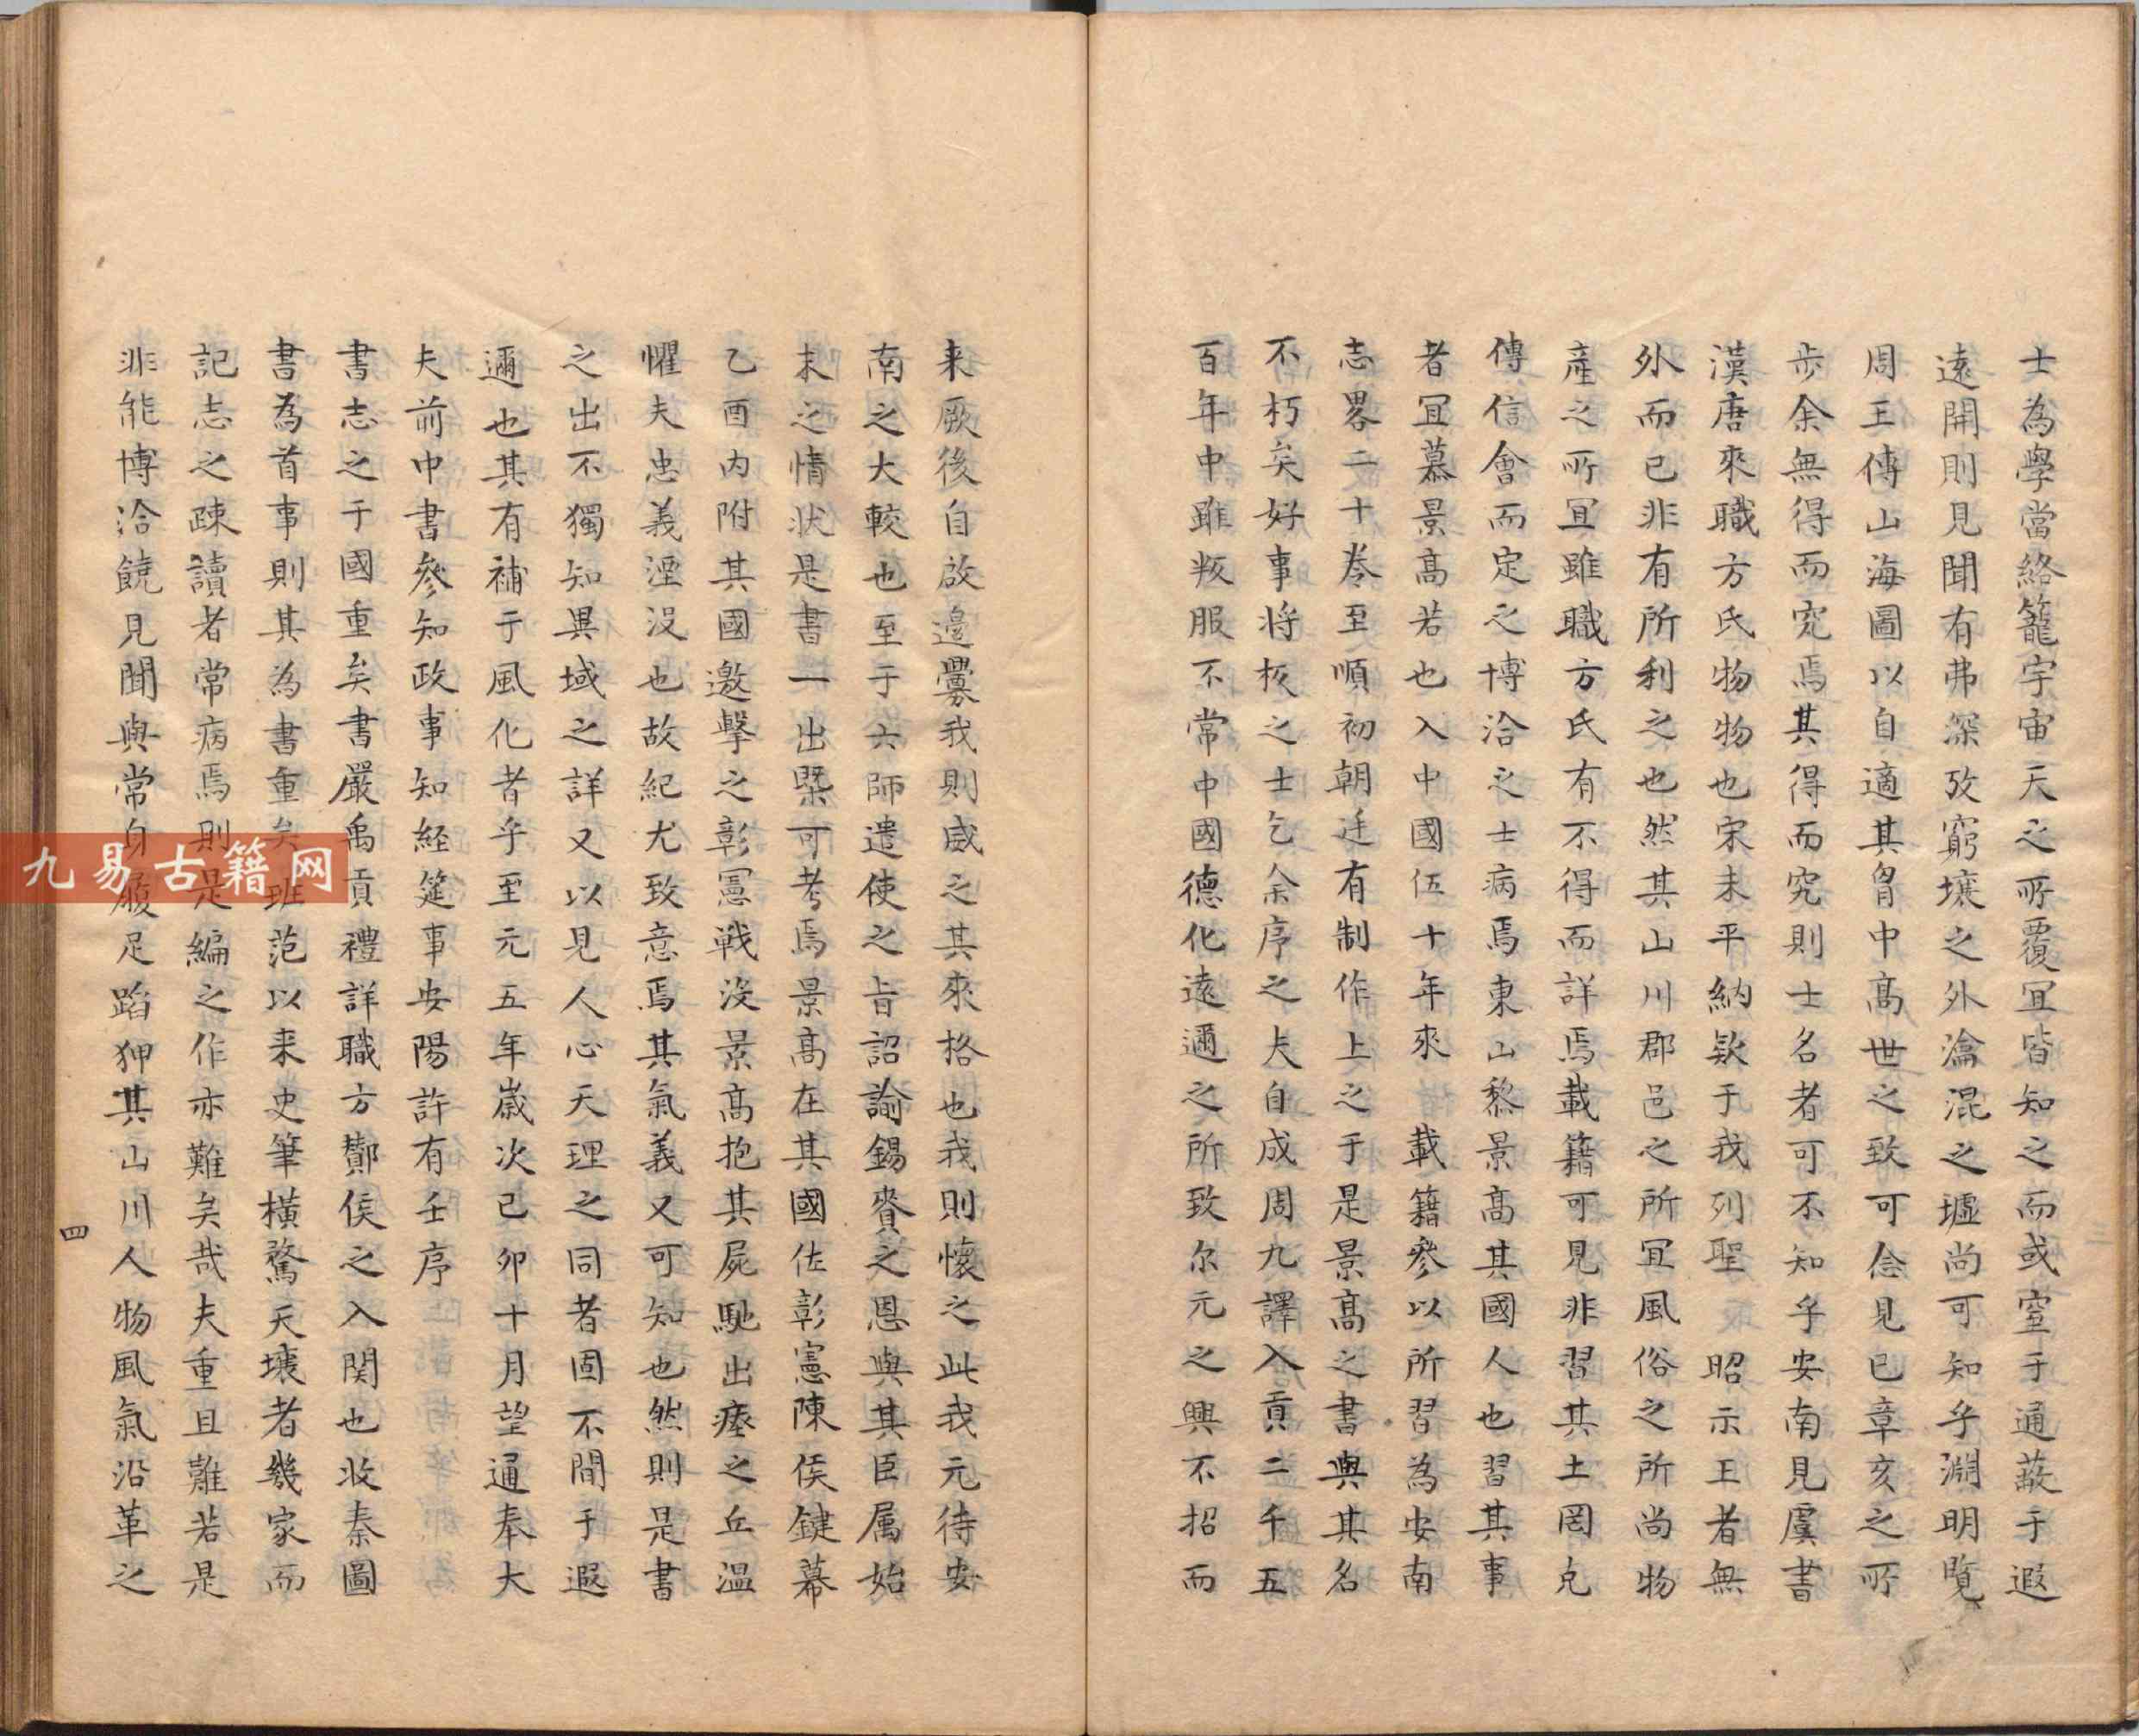 士為學當絡籠宇宙天之所覆冝皆知之而或窒于通蔽于遐
遠開則見聞有弗深攷窮壤之外瀹混之墟尚可知乎淵明覽
周王傳山海圖以自適其胷中髙世之致可念見已章亥之所
歩余無得而究焉其得而究則士名者可不知乎安南見虞書
漢唐來職方氏物物也宋未平納欵于我列聖昭示王者無
外而已非有所利之也然其山川郡邑之所冝風俗之所尚物
產之所冝雖職方氏有不得而詳焉載籍可見非習其土罔克
傳信會而定之博洽之士病焉東山黎景髙其國人也習其事
者冝慕景髙若也入中國伍十年來載籍參以所習為安南
志畧二十卷至順初朝廷有制作上之于是景髙之書與其名
不朽矣好事将核之士乞余序之夫自成周九譯入貢二千五
百年中雖叛服不常中國德化遠邇之所致尔元之興不招而
来厥後自啟邉釁我則威之其來格也我則懷之此我元待安
南之大較也至于六師遣使之旨詔諭錫賚之恩與其臣属始
末之情状是書一出槩可考焉景髙在其國佐彰憲陳侯鍵幕
乙酉内附其國邀擊之彰憲戦沒景髙抱其屍馳出瘞之丘温
懼夫忠義湮没也故紀尤致意焉其氣義又可知也然則是書
之出不獨知異域之詳又以見人心天理之同者固不間于遐
邇也其有補于風化者乎至元五年歲次己卯十月望通奉大
夫前中書參知政事知経筵事安陽許有壬序
書志之于國重矣書嚴禹貢禮詳職方酇侯之入関也收秦圖
書為首事則其為書重矣班范以来史筆橫騖天壤者幾家而
記志之踈讀者常病焉則是編之作亦難矣哉夫重且難若是
非能博洽饒見聞與常身履足蹈狎其山川人物風氣沿革之
四
九易古籍网